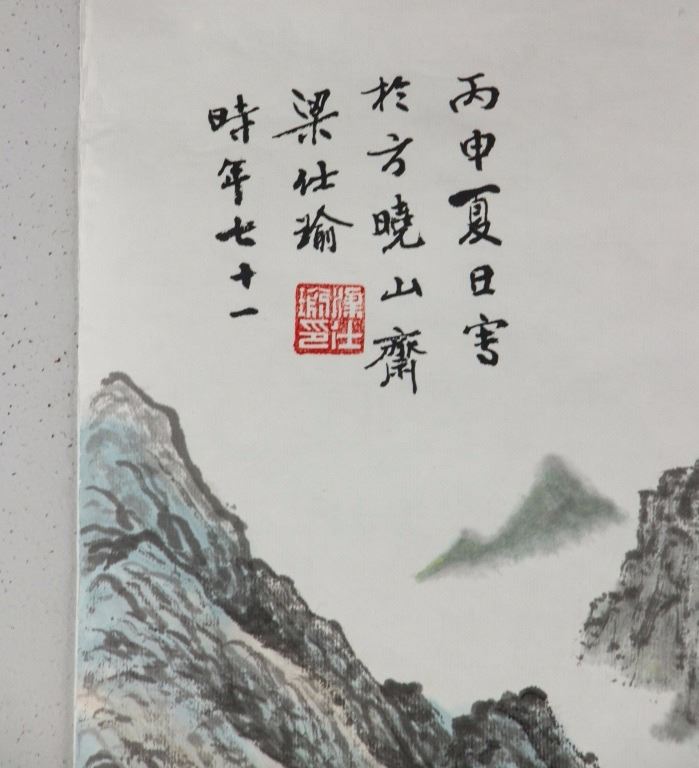 丙申夏日寫
於方曉山齋
梁仕瑜
時年七十一
梁仕瑜印